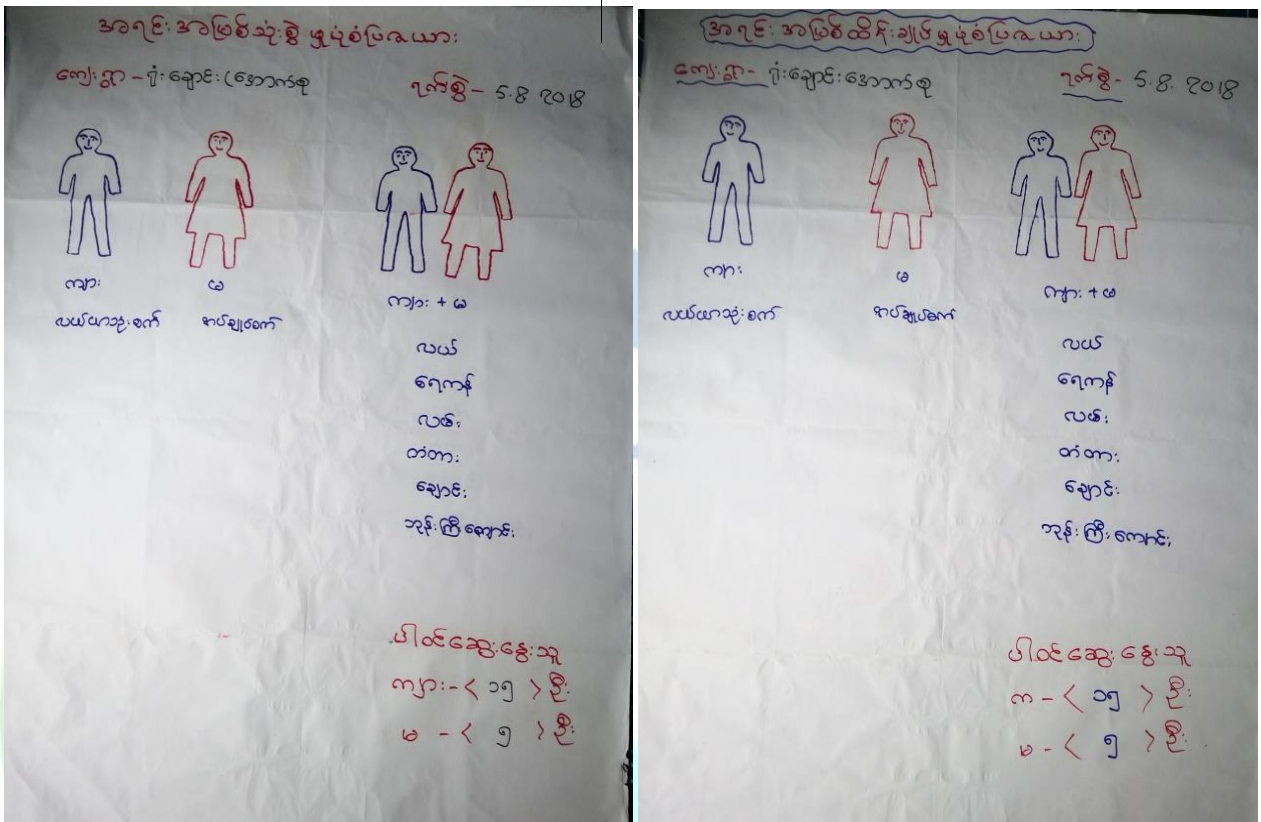 အရင်းအမြစ်သုံးစွဲမှုပုံစံပြဇယား
ကျေးရွာ - ရုံးချောင်း(အောက်စု
ရက်စွဲ - 5.8 2018
ကျား
မ
ကျား + မ
လယ်ယာသုံးစက်
စက်
လယ်
ရေကန်
လမ်း
တံတား
ချောင်း
ဘုန်းကြီးကျောင်း
ပါဝင်ဆွေးနွေးသူ
ကျား - < ၁၅ > ဦး
မ - < ၅ > ဦး
အရင်းအမြစ်ထိန်းချုပ်မှုပုံစံပြဇယား
ကျေးရွာ - ရုံးချောင်းအောက်စု
ရက်စွဲ - 5.8.2018
ကျား
မ
ကျား + မ
လယ်ယာသုံးစက်
အပ်ချုပ်စက်
လယ်
ရေကန်
လမ်း
တံတား
ချောင်း
ဘုန်းကြီးကျောင်း
ပါဝင်ဆွေးနွေးသူ
က - < ၁၅ > ဦး
မ - < ၅ > ဦး